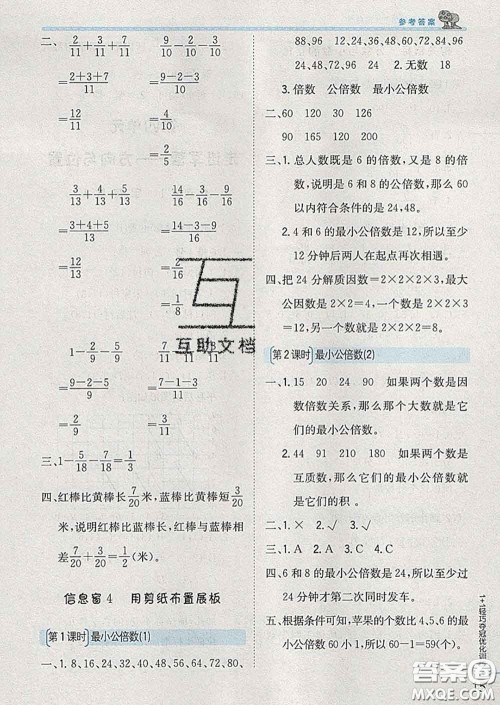 参考答案
二、2/11+3/11+7/11  9/11-3/11+5/11
=(2+3+7)/11  =(9-3+5)/11
=12/11  =11/11
=1
3/13+4/13+5/13  14/16-3/16-9/16
=(3+4+5)/13  =(14-3-9)/16
=12/13  =2/16
=1/8
1-2/9-5/9  7/8-1/8-3/8
=(9-2-5)/9  =(7-1-3)/8
=2/9  =3/8
三、1-5/18-7/18=6/18=1/3
四、红棒比黄棒长7/20米,蓝棒比黄棒短3/20
米,说明红棒比蓝棒长,红棒与蓝棒相
差7/20+3/20=1/2(米)。
信息窗4 用剪纸布置展板
第1课时 最小公倍数(1)
一、1.8,16,24,32,40,48,56,64,72,80,
88,96 12,24,36,48,60,72,84,96
24,48,72,96 24 2.无数 18
3.倍数 公倍数 最小公倍数
二、60 120 30 126
90 165 150 168
三、1.总人数既是6的倍数,又是8的倍
数,说明是6和8的公倍数,那么60
以内符合条件的是24,48。
2.4和6的最小公倍数是12,所以至少
12分钟后两人在起点再次相遇。
四、把24分解质因数=2×2×2×3,最大
公因数是2×2=4,一个数是2×2×3
=12,另一个数就是2×2×2=8。
第2课时 最小公倍数(2)
一、1.15 20 24 90 如果两个数是因
数倍数关系,那么大数就是它们
的最小公倍数。
2.44 91 210 180 如果两个数是
互质数,那么它们的最小公倍数就
是它们的积。
二、1.× 2.√ 3.√
三、1.A 2.A 3.C
四、6和8的最小公倍数是24,所以至少
24分钟才第二次同时发车。
五、根据条件可知,苹果的个数比4,5,6的最
小公倍数60小1,所以60-1=59(个)。
1+1轻巧夺冠优化训
互助文档
答案圈
MXQE.COM